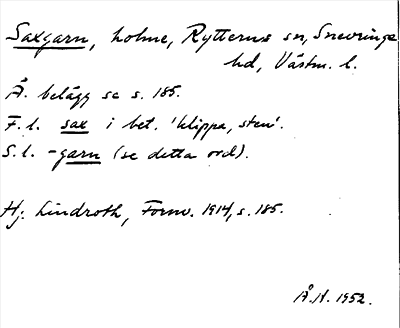 Saxgarn, holme, Rytterns sn, Snevringe
hd, Västm. l.
Ä. belägg se s. 185.
F.l. sax i bet. 'klippa, sten'.
S.l. -garn (se detta ord).
Hj. Lindroth, Fornv. 1914, s. 185.
Å.H. 1952.